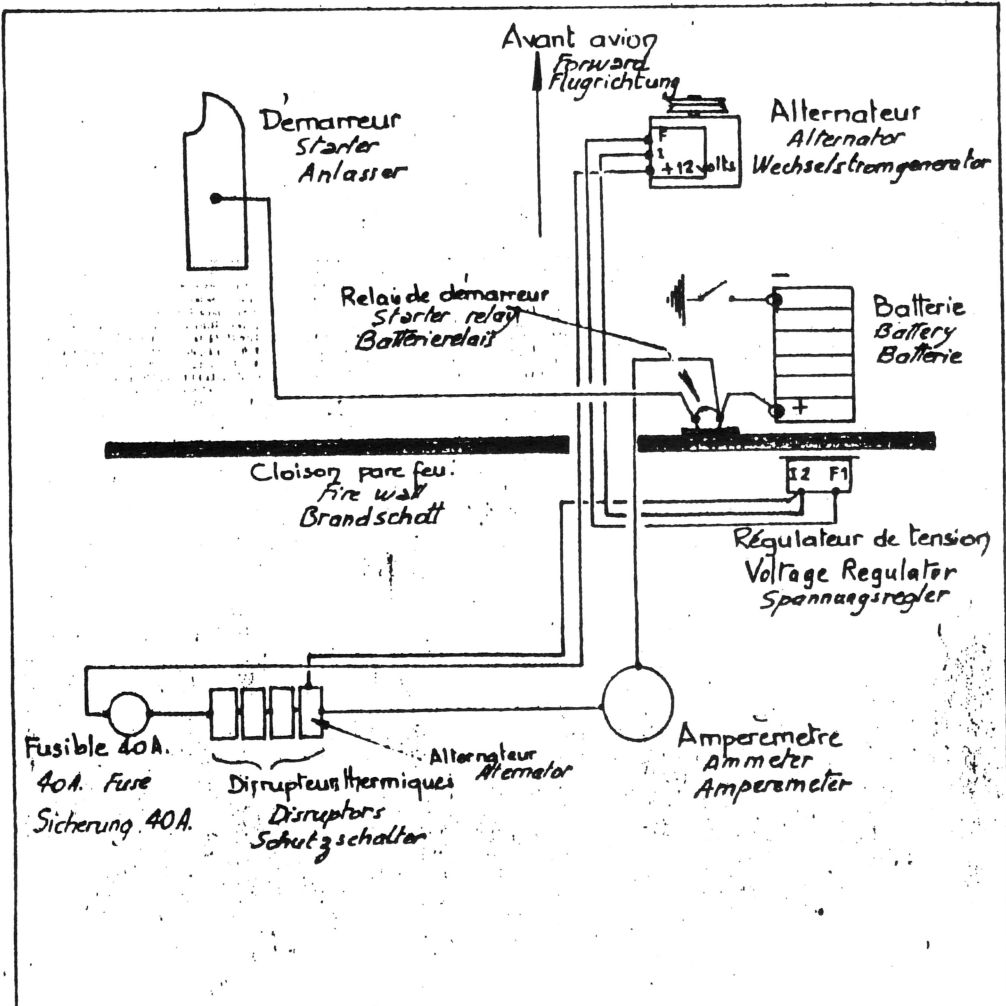 Avant avion
Forward
Flugrichtung
Démarreur
Starter
Anlasser
Alternateur
Alternator
Wechselstromgenerator
F
I
+12 volts
Relais de démarreur
Starter relay
Batterierelais
−
+
Batterie
Battery
Batterie
Cloison pare feu:
Fire wall
Brandschott
I2 F1
Régulateur de tension
Voltage Regulator
Spannungsregler
Fusible 40A.
40A. Fuse
Sicherung 40A.
Disrupteurs thermiques
Disruptors
Schutzschalter
Alternateur
Aternator
Ampèremètre
Ammeter
Amperemeter